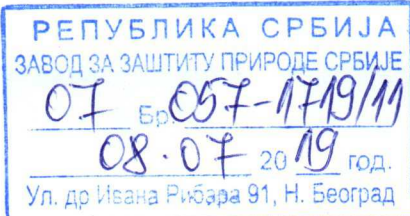 РЕПУБЛИКА СРБИЈА
ЗАВОД ЗА ЗАШТИТУ ПРИРОДЕ СРБИЈЕ
07 Бр. 057-1719/11
08.07 2019 год.
Ул. др Ивана Рибара 91, Н. Београд